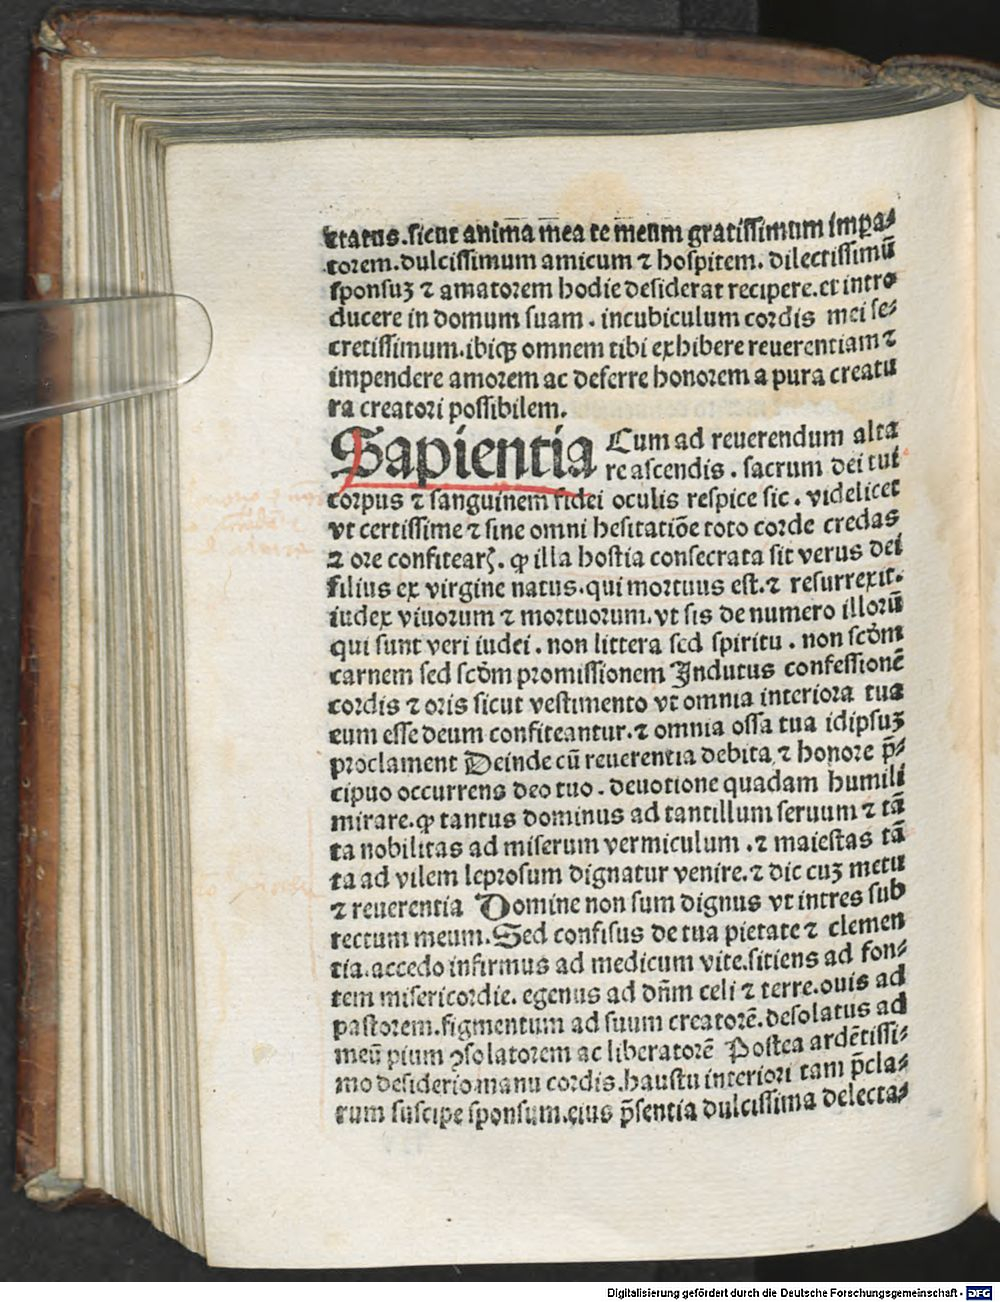 ctatus.sicut anima mea te meum gratissimum imp̱a⸗
torem.dulcissimum amicum ⁊ hospitem. dilectissimū
sponsuꝫ ⁊ amatorem hodie desiderat recipere.et intro
ducere in domum suam . incubiculum cordis mei se⸗
cretissimum.ibiqꝫ omnem tibi exhibere reuerentiam ⁊
impendere amorem ac deferre honorem a pura creatu
ra creatori possibilem.
Sapientia Cum ad reuerendum alta
re ascendis . sacrum dei tui
corpus ⁊ sanguinem fidei oculis respice sic . videlicet
vt certissime ⁊ sine omni hesitatiōe toto corde credas
⁊ ore confitearꝭ. ꝙ illa hostia consecrata sit verus dei
filius ex virgine natus.qui mortuus est.⁊ resurrexit.
iudex viuorum ⁊ mortuorum.vt sis de numero illorū
qui sunt veri iudei . non littera sed spiritu . non scd̄m
carnem sed scd̄m promissionem Indutus confessionē
cordis ⁊ oris sicut vestimento vt omnia interiora tua
eum esse deum confiteantur.⁊ omnia ossa tua idipsuꝫ
proclament Deinde cū reuerentia debita ⁊ honore p̄⸗
cipuo occurrens deo tuo . deuotione quadam humili
mirare.ꝙ tantus dominus ad tantillum seruum ⁊ tā
ta nobilitas ad miserum vermiculum .⁊ maiestas tā
ta ad vilem leprosum dignatur venire.⁊ dic cuꝫ metu
⁊ reuerentia Domine non sum dignus vt intres sub
tectum meum.Sed confisus de tua pietate ⁊ clemen
tia.accedo infirmus ad medicum vite.sitiens ad fon⸗
tem misericordie. egenus ad dn̄m celi ⁊ terre.ouis ad
pastorem.figmentum ad suum creatorē.desolatus ad
meū pium ꝯsolatorem ac liberatorē Postea ardētissi⸗
mo desiderio.manu cordis.haustu interiori tam p̄cla⸗
rum suscipe sponsum.cius p̄sentia dulcissima delecta⸗
Digitalisierung gefördert durch die Deutsche Forschungsgemeinschaft - DFG